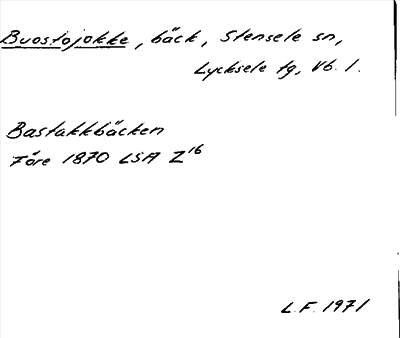 Buostojokke, bäck, Stensele sn,
Lycksele tg, Vb. l.
Bastukkbäcken
Före 1870 LSA Z16
L.F. 1971